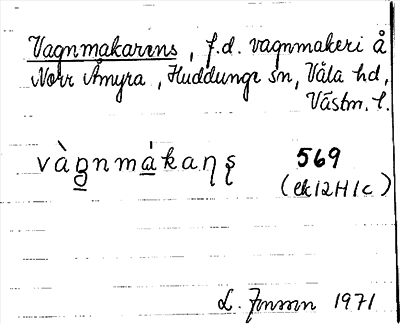 Vagnmakarens, f.d. vagnmakeri å
Norr Åmyra, Huddunge sn, Våla hd,
Västm. l.
vàgnmákaɳʂ 569
(ek 12H1c)
L. Jonson 1971